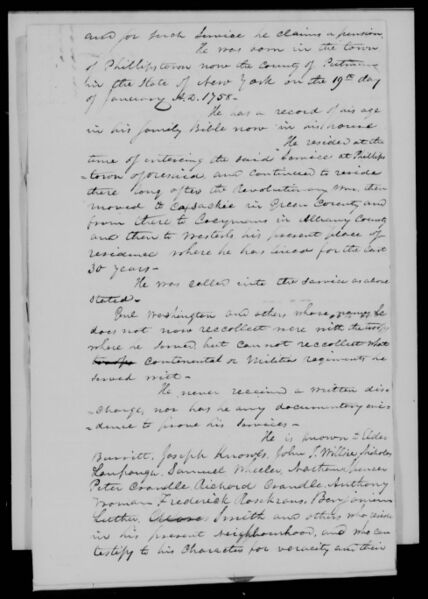 and for such service he claims a pension
He was born in the town
of Phillipstown now the County of Putnam
in the State of New York on the 19th day
of January A.D. 1758-
He has a record of his age
in his family Bible now in his house
He resided at the
time of entering the said service at Phillips
-town aforesaid and continued to reside
there long after the Revolutionary War, then
moved to Coxsackie in Green County and
from there to Coeymans in Albany County
and then to Westerlo his present place of
residence where he has lived for the last
30 years-
He was called into the service as above
stated-
Genl Washington and others whose names he
does not now reccollect were with the troops
where he served but cannot reccollect what
troops Continental or Militia regiments he
served with-
He never received a written dis-
-charge, nor has he any documentary evi-
-dence to prove his services-
He is known to Elder
Burritt, Joseph Knowles, John J. Willsie,
Samuel Wheeler,
Peter Crandle Richard Crandle Anthony
Frederick Rosekrans, Benjamin
Luther, Smith and others who reside
in his present Neighbourhood, and who can
testify to his character for veracity and their